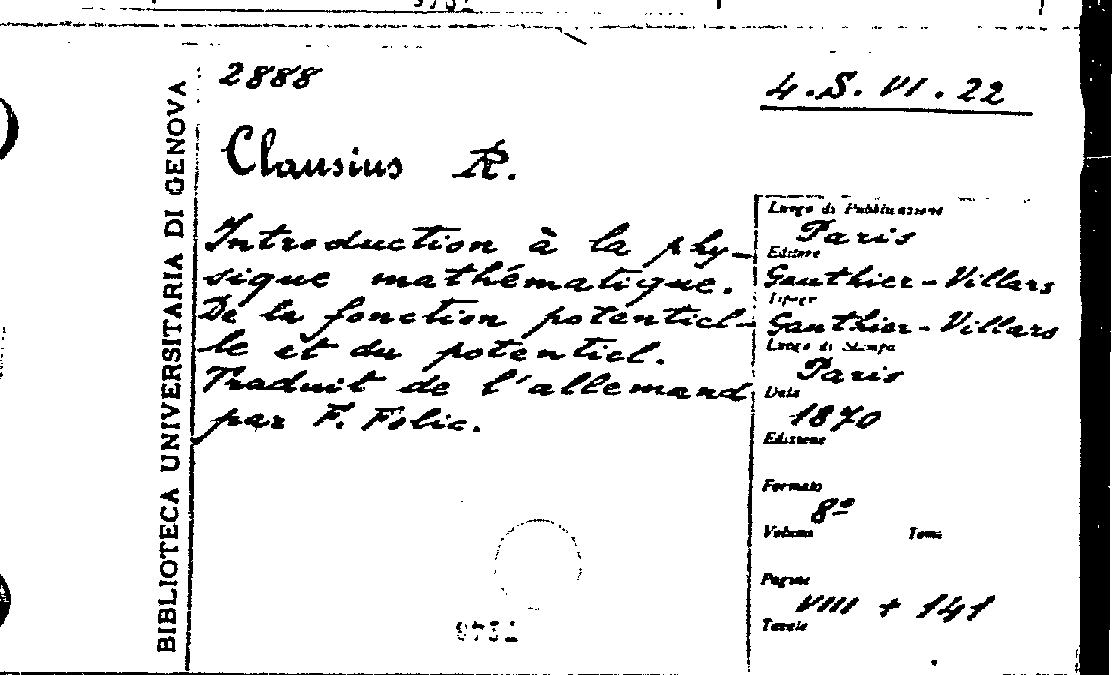 BIBLIOTECA UNIVERSITARIA DI GENOVA
2888
4.S.VI.22
Clausius R.
Introduction à la phy-
sique mathématique.
De la fonction potentiel-
le et du potentiel.
Traduit de l'allemand
par F. Folie.
Luogo di Pubblicazione
Paris
Editore
Gauthier-Villars
Tipogr
Gauthier-Villars
Luogo di Stampa
Paris
Data
1870
Edizione
Formato
8º
Volume Tomo
Pagine
VIII + 141
Tavole